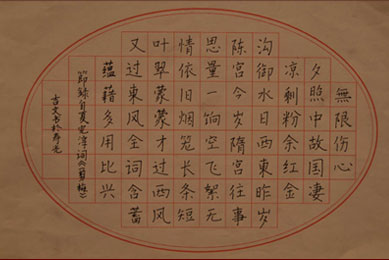 無限伤心
夕照中故国凄
凉剩粉余红金
沟御水日西東昨岁
陈宫今岁隋宫往事
思量一饷空飞絮无
情依旧烟笼长条短
叶翠蒙蒙才过西风
又过東风全词含蓄
蕴藉多用比兴
節錄自夏完淳词《一剪梅》
古文书於